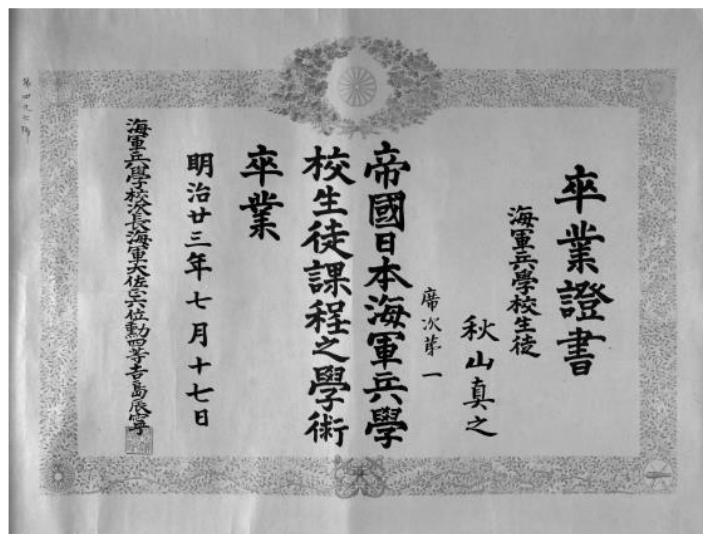 卒業證書
海軍兵學校生徒
秋山真之
席次第一
帝國日本海軍兵學
校生徒課程之學術
卒業
明治廿三年七月十七日
海軍兵學校次長海軍大佐正六位勳四等吉島辰寧